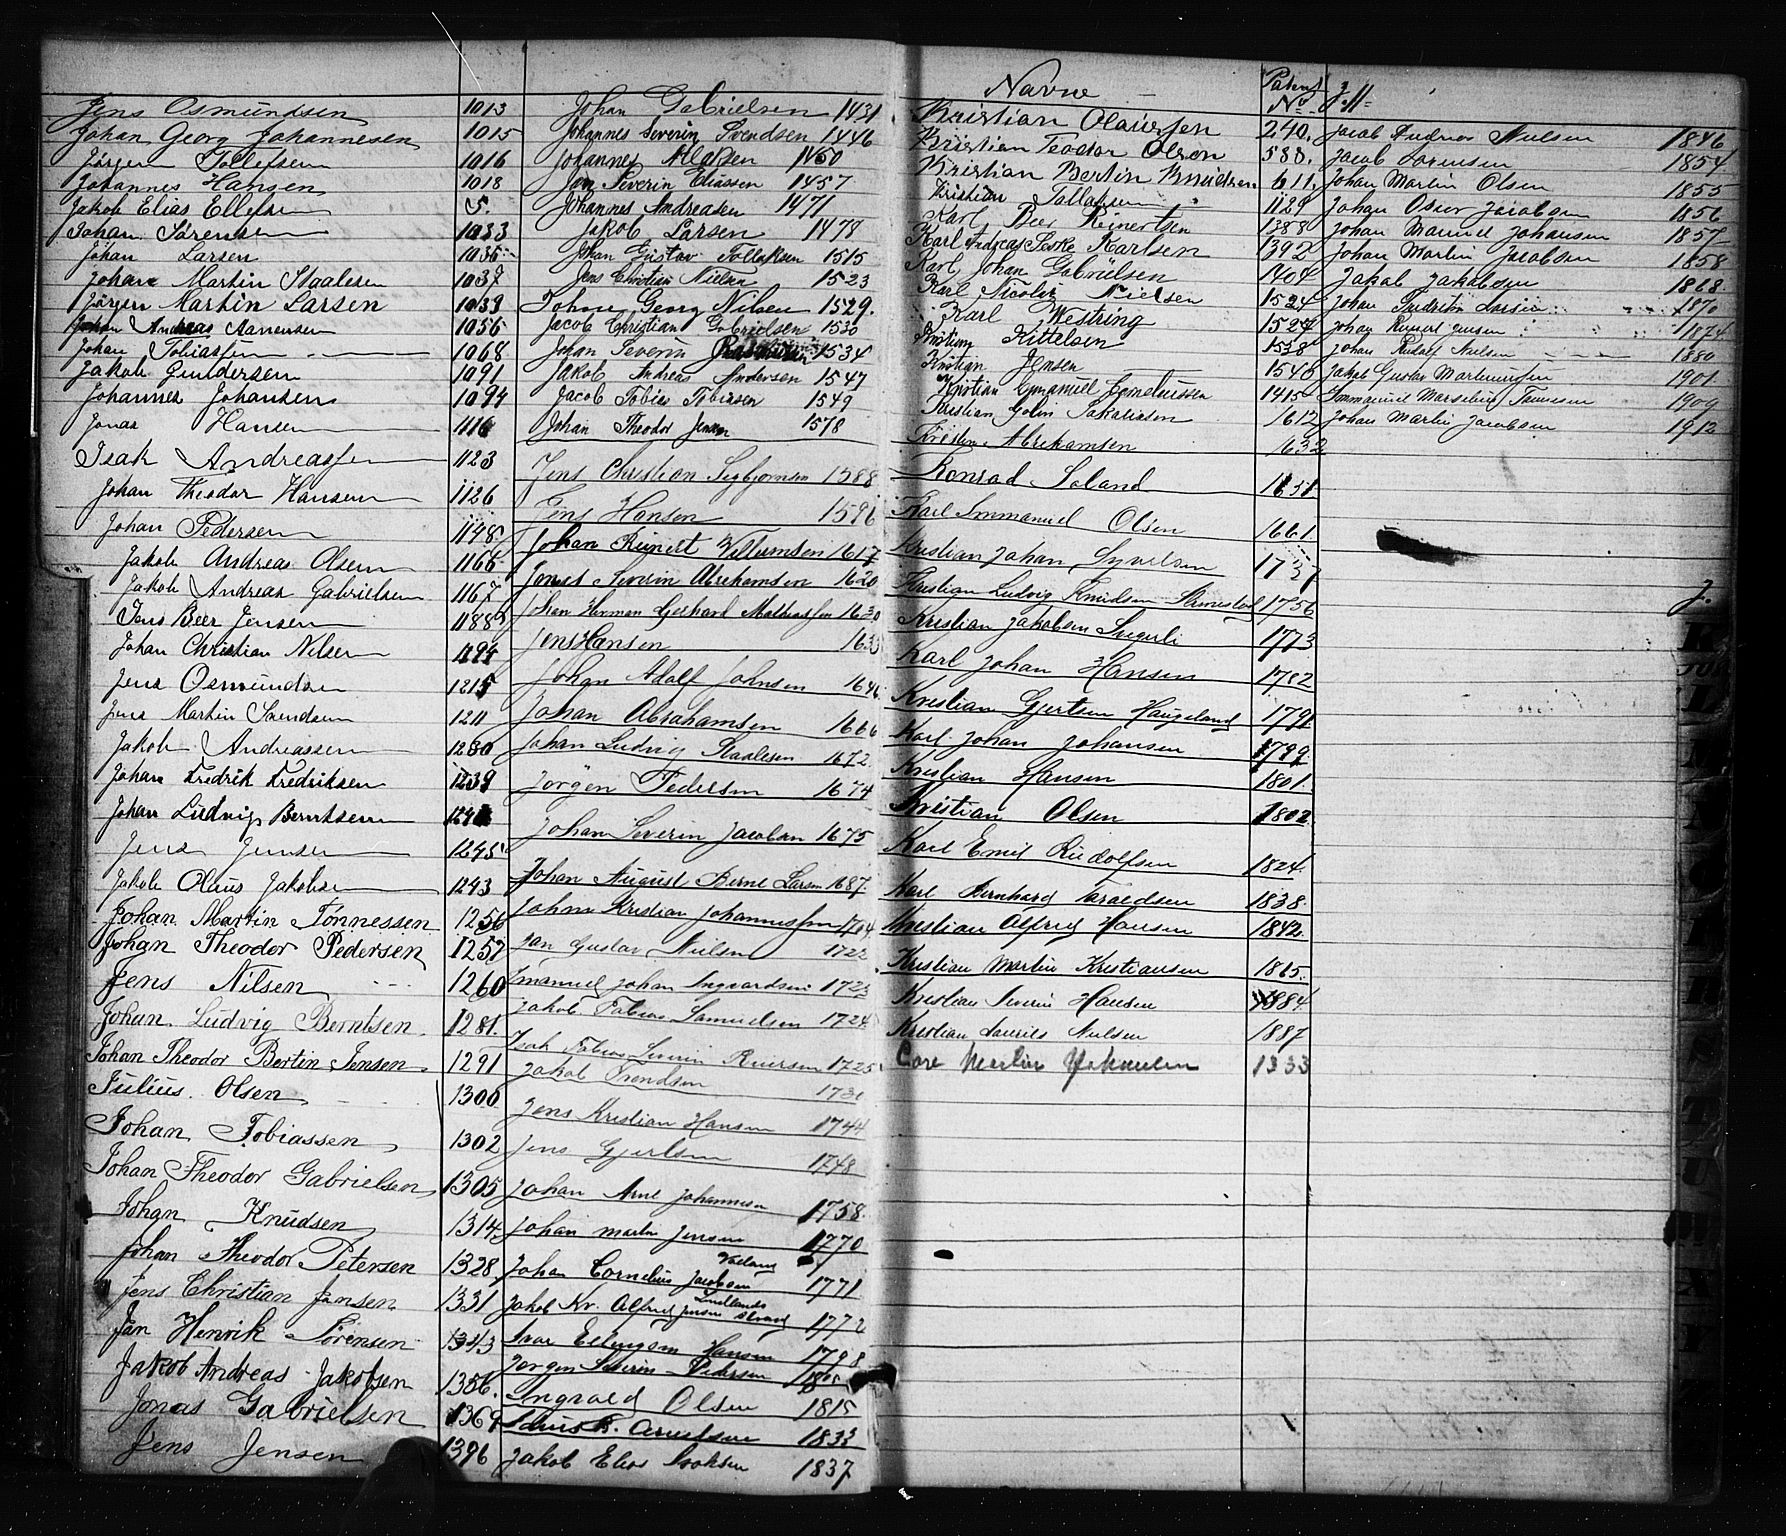 Jens Osmundsen 1013
Johan Georg Johannesen 1015
Jørgen Tollefsen 1016
Johannes Hansen 1018
Jakob Elias Ellefsen 5.
Johan Sørensen 1033
Johan Larsen 1035
Johan Martin Staalesen 1037
Jørgen Martin Larsen 1039
Johan Andreas Aanensen 1056
Johan Tobiassen 1068
Jakob Gundersen 1091
Johannes Johansen 1094
Jonas Hansen 1116
Isak Andreassen 1123
Johan Theodor Hansen 1126
Johan Pedersen 1148
Jakob Andreas Olsen 1166
Jakob Andreas Gabrielsen 1167
Jens Beer Jensen 1188
Johan Christian Nilsen 1194
Jens Osmundsen 1215
Jens Martin Svendsen 1211
Jakob Andreassen 1280
Johan Fredrik Fredriksen 1239
Johan Ludvig Berntsen
Jens Jensen 1245
Jakob Olaus Jakobsen 1243
Johan Martin Tønnessen 1256
Johan Theodor Pedersen 1257
Jens Nilsen 1260
Johan Ludvig Berntsen 1281.
Johan Theodor Bertin Jensen 1291
Julius Olsen 1300
Johan Tobiassen 1302
Johan Theodor Gabrielsen 1305
Johan Knudsen 1314
Johan Theodor Petersen 1328
Jens Christian Jansen 1331
Jan Henrik Sørensen 1343
Jakob Andreas Jakobsen 1356.
Jonas Gabrielsen 1369
Jens Jensen 1396
Johan Gabrielsen 1431
Johannes Severin Svendsen 1446
Johannes Nilssen 1450
Jon Severin Eliassen 1457
Johannes Andreasen 1471
Jakob Larsen 1479
Johan Gustav Tollaksen 1515
Jens Christian Nielsen 1523
Johan Georg Nilsen 1529.
Jacob Christian Gabrielsen 1530
Johan Severin Rasmussen 1534
Jakob Andreas Andersen 1547
Jacob Tobias Tobiasen 1549
Johan Theodor Jensen 1578
Jens Christian Sigbjørnsen 1588
Jens Hansen 1596
Johan Reinert Villumsen 1617
Jonas Severin Abrahamsen 1620
Johan Herman Gerhard Mathiassen 1630
Jens Hansen
Johan Adolf Johnsen 1646
Johan Abrahamsen 1666
Johan Ludvig Staalesen 1672
Jörgen Pedersen 1674
Johan Severin Jacobsen 1675
Johan August Bernt Larsen 1687
Johan Kristian Johannessen 1704
Jan Gustav Nielsen 1722
Emanuel Johan Ingvardsen 1723
Jakob Tobias Samuelsen 1724
Isak Tobias Severin Reiersen 1725
Jakob Trondsen
Jens Kristian Hansen 1744
Jens Gjertsen 1748
Johan Arnt Johannesen 1758.
Johan Martin Jensen 1770
Johan Cornelius Jacobsen 1771
Jakob Kr. Alfred Jensen 1772
Ivar Ellingsen Hansen 1798
Jørgen Severin Pedersen
Ingvald Olsen 1815
1833
Jakob Elias Isaksen 1837
Navne Patent No J.
Kristian Olaussen 240.
Kristian Teodor Olsen 588.
Kristian Bertin Knudsen 611.
Kristian Tollaksen 1129
Karl Beer Reinertsen 1388
Karl Andreas Karlsen 1392
Karl Johan Gabrielsen 1404
Karl Nicolai Nielsen 1524
Karl Westring 1524
Kristian Kittelsen 1538
Kristian Jensen 1540
Kristian Emanuel Corneliussen 1415
Kristian Golin Sakariasen 1612
Kristen Abrahamsen 1632
Konrad Soland 1651
Karl Immanuel Olsen 1661
Kristian Johan Syvertsen 1737
Kristian Ludvig Knudsen 1756
Kristian Jakobsen 1773
Karl Johan Hansen 1782
Kristian Gjertsen Haugeland 1791
Karl Johan Johansen 1799
Kristian Hansen 1801.
Kristian Olsen 1802.
Karl Emil Rudolfsen 1824.
Karl Bernhard 1838.
Kristian Alfred Hansen 1842.
Kristian Martin Kristiansen 1865.
Kristian Severin Hansen 1884.
Kristian Laurits Nielsen 1887
Carl Martin 1333
Jacob Andreas Nielsen 1846
Jacob Sørensen 1854
Johan Martin Olsen 1855
Johan Oscar Jacobsen 1856
Johan Manuel Johansen 1857
Johan Martin Jacobsen 1858
Jakob Jakobsen 1868
Johan Fredrik Larsen 1870
Johan Reinert Jensen 1874
Johan Rudolf Nielsen 1880
Jakob Gustav Martiniussen 1901
Immanuel Marselius Tønnesen 1909
Johan Martin Jacobsen 1912
J.
K
L
M
N
O